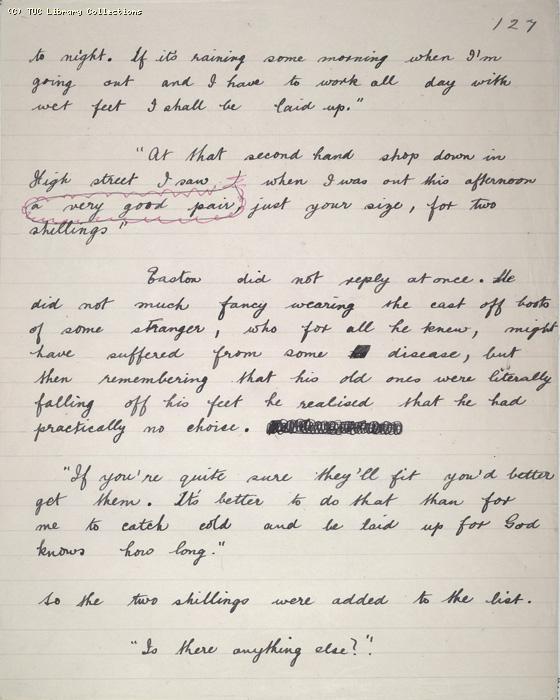 (C) TUC Library Collections
127
to night. If it's raining some morning when I'm
going out and I have to work all day with
wet feet I shall be laid up."
"At that second hand shop down in
High street I saw when I was out this afternoon
a very good pair, just your size, for two
shillings"
Easton did not reply at once. He
did not much fancy wearing the cast off boots
of some stranger, who for all he knew, might
have suffered from some disease, but
then remembering that his old ones were literally
falling off his feet he realised that he had
practically no choice.
"If you're quite sure they'll fit you'd better
get them. It's better to do that than for
me to catch cold and be laid up for God
knows how long."
So the two shillings were added to the list.
"Is there anything else?".